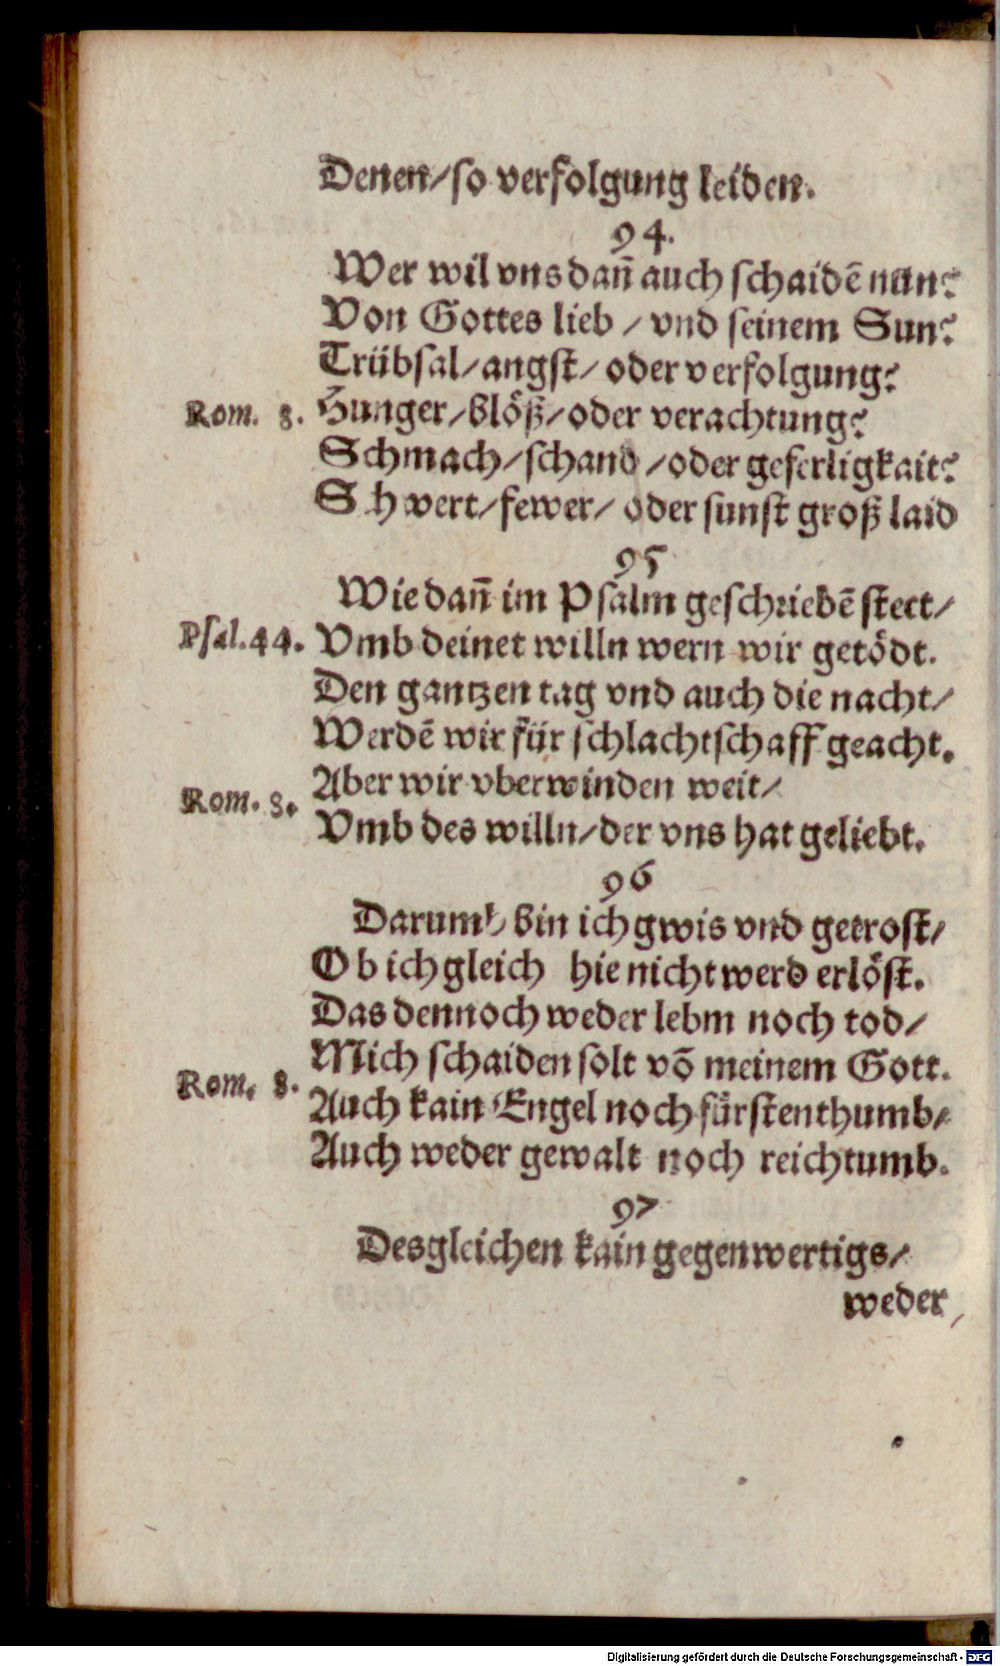 Denen/so verfolgung leiden.
94.
Wer wil vns dañ auch schaidē nun?
Von Gottes lieb / vnd seinem Sun?
Trübsal/angst/oder verfolgung?
Rom. 8. Hunger/blöß/oder verachtung?
Schmach/schand /oder geferligkait?
S hwert/fewer/ oder sunst groß laid
95
Wie dañ im Psalm geschriebē stect/
Psal.44. Vmb deinet willn wern wir getödt.
Den gantzen tag vnd auch die nacht/
Werdē wir für schlachtschaff geacht.
Aber wir vberwinden weit/
Rom. 8. Vmb des willn/der vns hat geliebt.
96
Darumb bin ich gwis vnd getrost/
Ob ich gleich hie nicht werd erlöst.
Das dennoch weder lebm noch tod/
Mich schaiden solt vō meinem Gott.
Rom. 8. Auch kain Engel noch fürstenthumb/
Auch weder gewalt noch reichtumb.
97
Desgleichen kain gegenwertigs/
weder
Digitalisierung gefördert durch die Deutsche Forschungsgemeinschaft - DFG